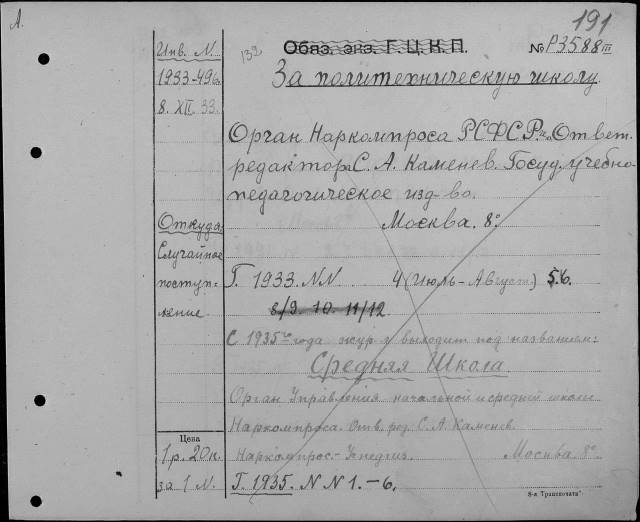 А.
191
132 Обяз. экз. Г.Ц.К.П. № Р3588 III
Инв. N. За политехническую школу
1933-496
8. XII. 33.
Орган Наркомпроса РСФСР. Ответ.
редактор С. А. Каменев. Госуд. учебно-
педагогическое изд-во.
Откуда: Москва. 8°.
Случайное
поступ-
ление
Г. 1933. NN. 4 (Июль-Август.) 5.6.
8/9 10. 11/12
С 1935го года жур-л выходит под названием:
Средняя Школа.
Орган Управления начальной и средней школы
Наркомпроса. Отв. ред. С. А. Каменев.
Цена
1 р. 20 к. Наркомпрос.- Учпедгиз. Москва 8°.
за 1 N. Г. 1935. NN 1.-6.
8-я Транспечать